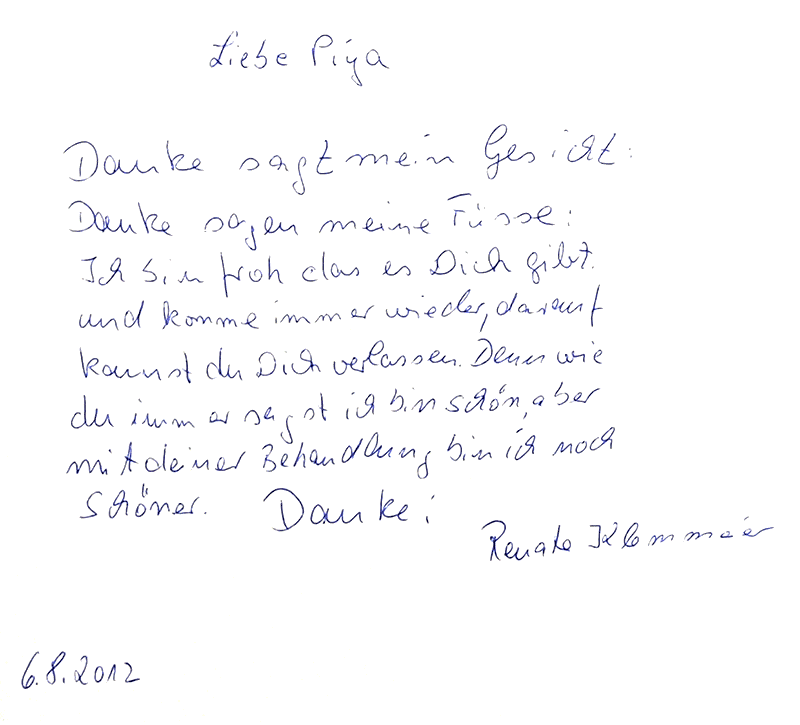 Liebe Piya
Danke sagt mein Gesicht:
Danke sagen meine Füsse:
Ich bin froh das es Dich gibt.
und komme immer wieder, darauf
kannst du Dich verlassen. Denn wie
du immer sagst ich bin schön, aber
mit deiner Behandlung bin ich noch
schöner. Danke!
Renate
6.8.2012